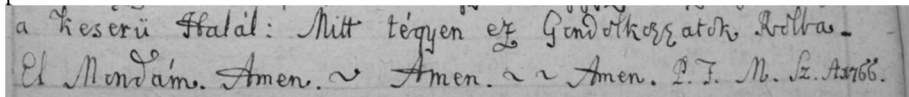 a Keserü Halál: Mitt tégyen ez Gondolkozzatok Rólla.
El Mondám. Amen. ~ Amen. ~ ~ Amen. P. J. M. Sz. A 1766.